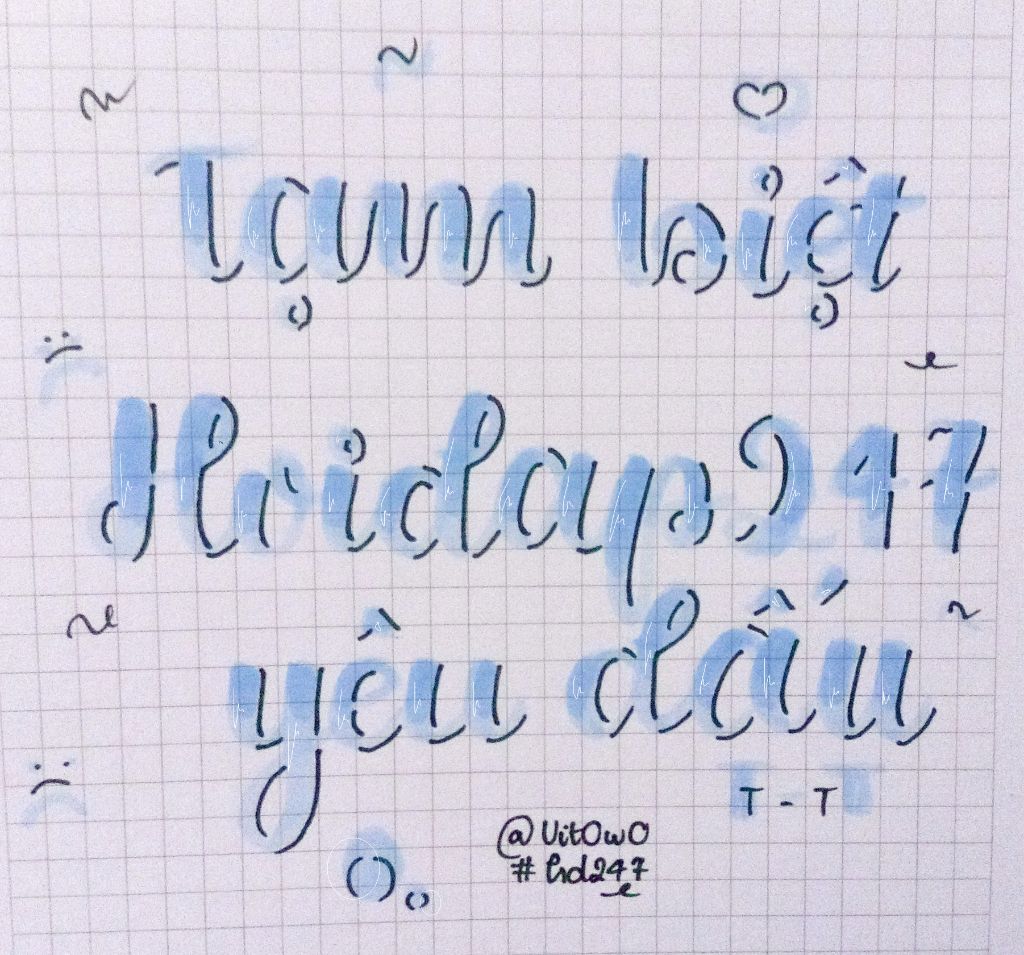 Tạm biệt
Hoidap247
yêu dấu
T - T
@VitOwO
#hd247